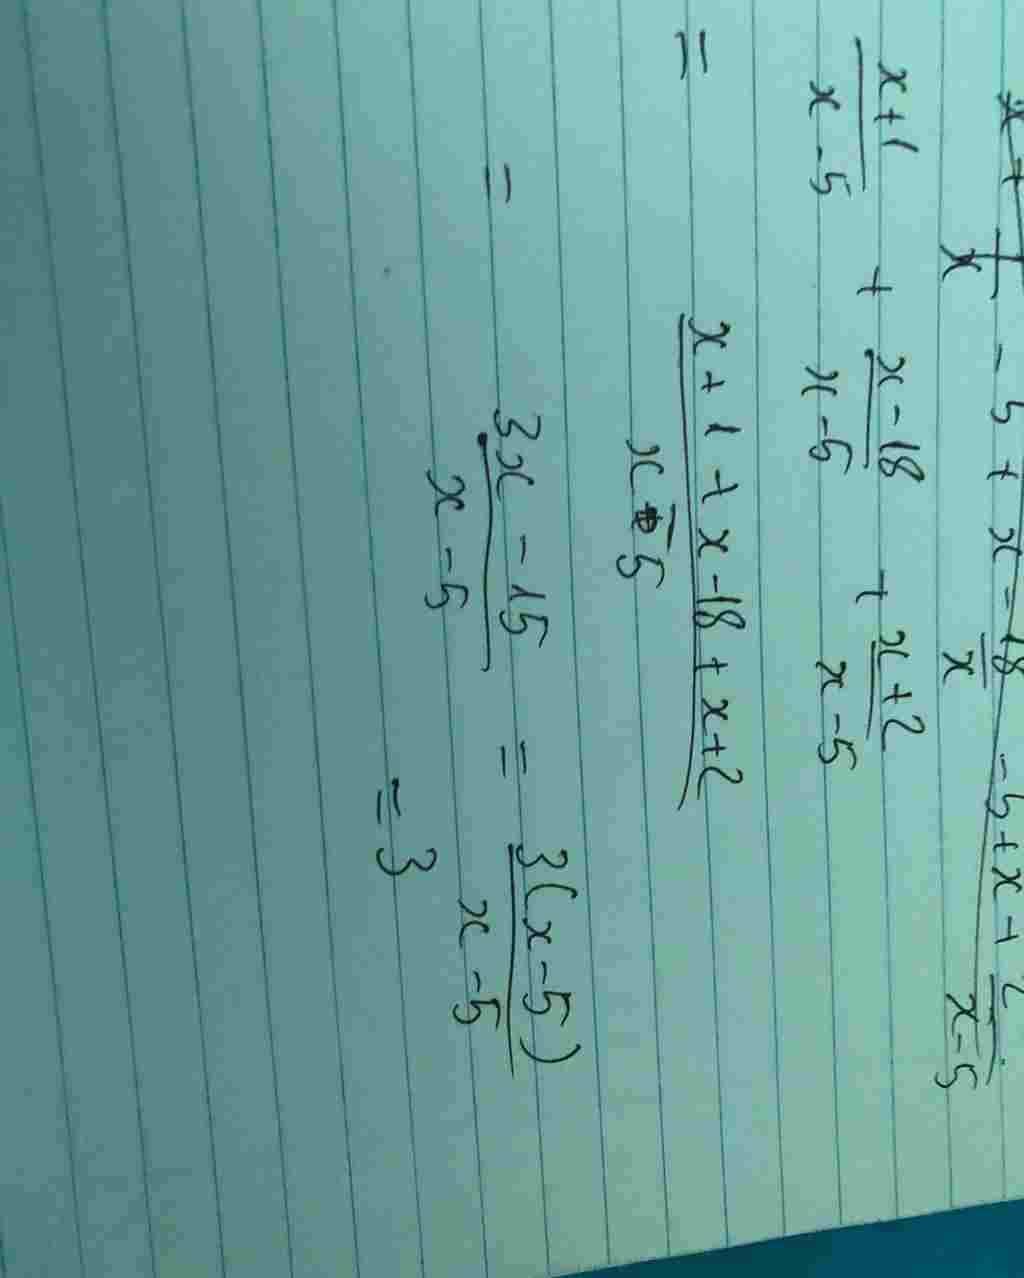 x + 1/x - 5 + x - 18/x - 5 + x + 2/x-5
x+1/x-5 + x-18/x-5 + x+2/x-5
= x+1+x-18+x+2/x-5
= 3x-15/x-5 = 3(x-5)/x-5
= 3